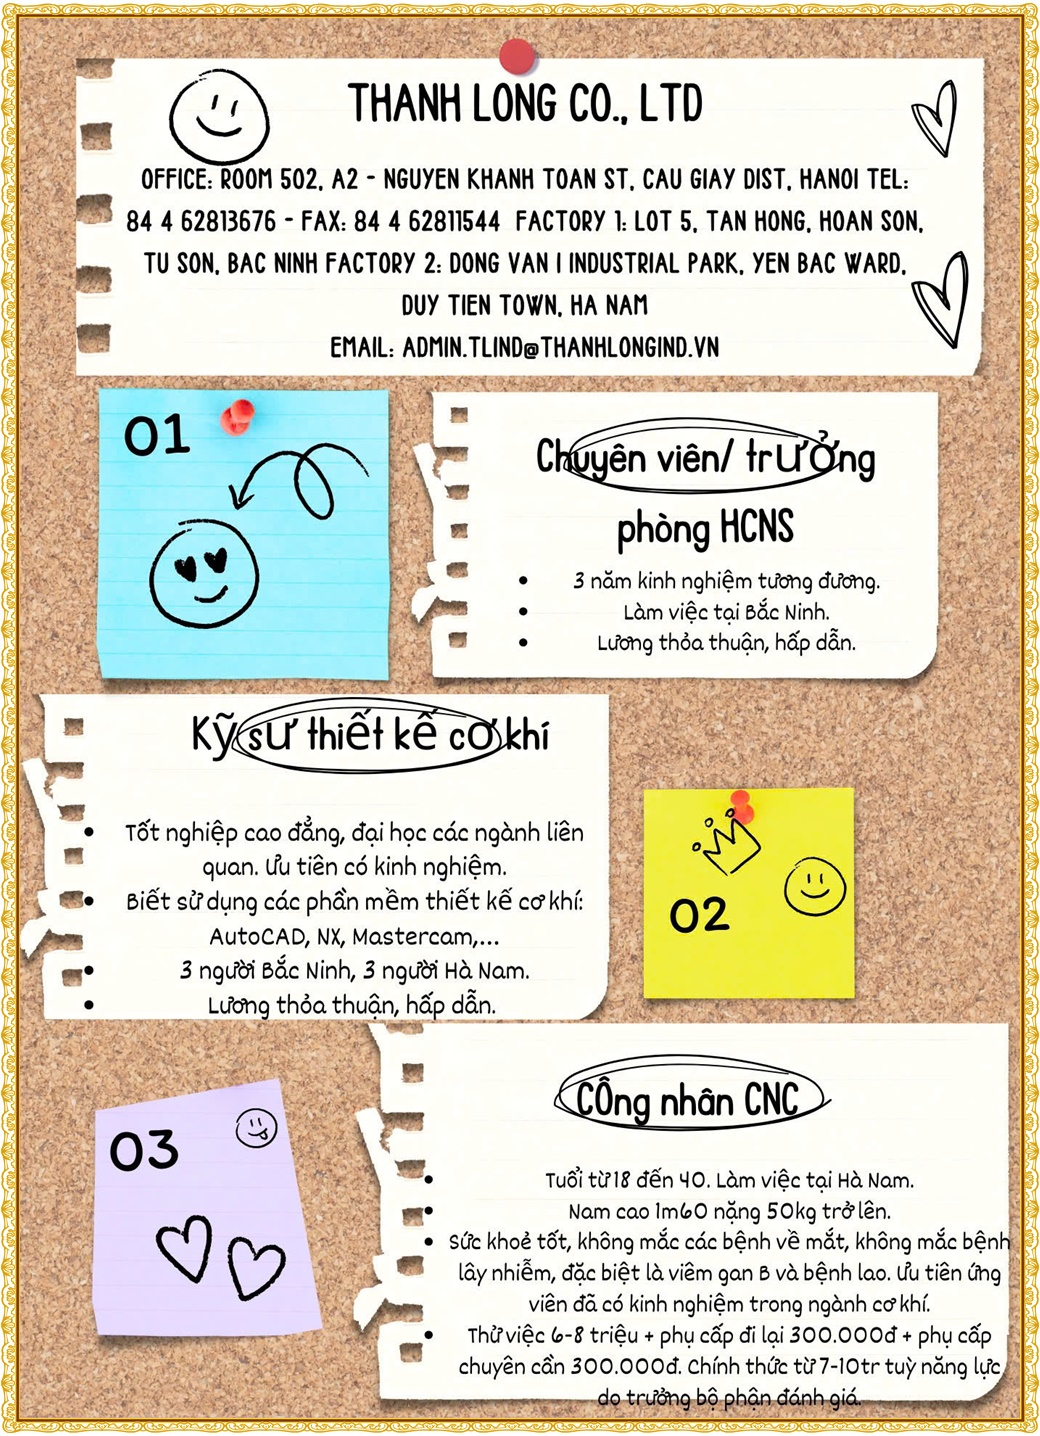 THANH LONG CO., LTD
OFFICE: ROOM 502, A2 - NGUYEN KHANH TOAN ST, CAU GIAY DIST, HANOI TEL:
84 4 62813676 - FAX: 84 4 62811544 FACTORY 1: LOT 5, TAN HONG, HOAN SON,
TU SON, BAC NINH FACTORY 2: DONG VAN I INDUSTRIAL PARK, YEN BAC WARD,
DUY TIEN TOWN, HA NAM
EMAIL: ADMIN.TLIND@THANHLONGIND.VN
01
Chuyên viên/ trưởng
phòng HCNS
• 3 năm kinh nghiệm tương đương.
• Làm việc tại Bắc Ninh.
• Lương thỏa thuận, hấp dẫn.
Kỹ sư thiết kế cơ khí
• Tốt nghiệp cao đẳng, đại học các ngành liên
quan. Ưu tiên có kinh nghiệm.
• Biết sử dụng các phần mềm thiết kế cơ khí:
AutoCAD, NX, Mastercam,...
• 3 người Bắc Ninh, 3 người Hà Nam.
• Lương thỏa thuận, hấp dẫn.
02
03
CÔng nhân CNC
• Tuổi từ 18 đến 40. Làm việc tại Hà Nam.
• Nam cao 1m60 nặng 50kg trở lên.
• Sức khoẻ tốt, không mắc các bệnh về mắt, không mắc bệnh
lây nhiễm, đặc biệt là viêm gan B và bệnh lao. Ưu tiên ứng
viên đã có kinh nghiệm trong ngành cơ khí.
• Thử việc 6-8 triệu + phụ cấp đi lại 300.000đ + phụ cấp
chuyên cần 300.000đ. Chính thức từ 7-10tr tuỳ năng lực
do trưởng bộ phận đánh giá.